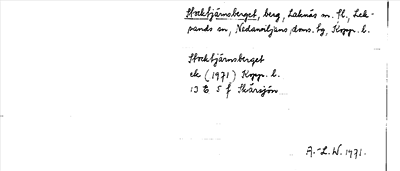 Stocktjärnsberget, berg, Laknäs m. fl., Lek-
sands sn, Nedansiljans doms. hg, Kopp. l.
Stocktjärnsberget
ek (1971) Kopp. l.
13 E 5 f Skärsjön
A.-L. W. 1971.